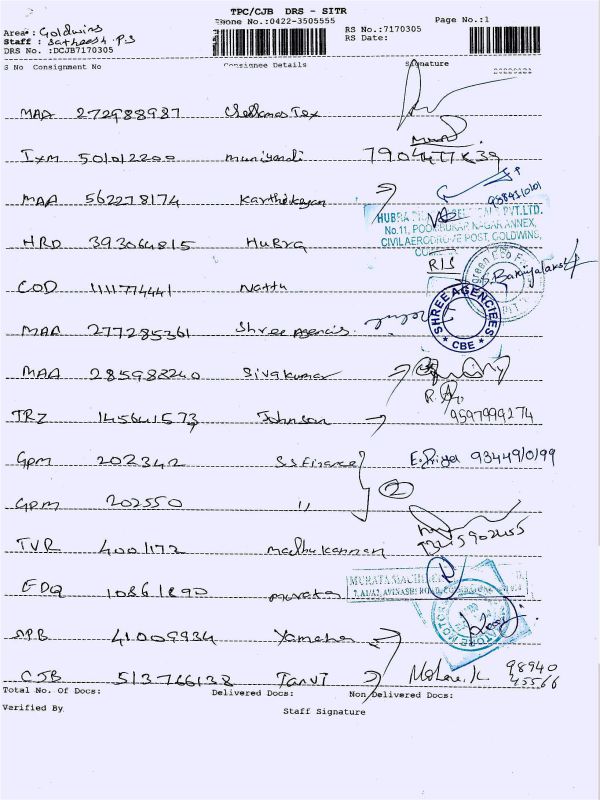 TPC/CJB DRS - SITR
Phone No.:0422-3505555
Page No.:1
Area: Goldwins
Staff : Satheesh P.S
DRS No. :DCJB7170305
RS No.:7170305
RS Date:
S No Consignment No Consignee Details Signature
MAA 272988987 Chellamas Tex
IXM 501012200 muniyandi
MAA 562278174 Karthikeyan
HRD 393064815 HuBra
HUBRA
No.11, POONKURAR NAGAR ANNEX,
CIVIL AERODROVE POST, GOLDWINS,
COD 1111774441 Nattu
R/S
MAA 277285361 Shree Agencis
SHREE AGENCIEES
* CBE *
MAA 285983240 Sivakumar
TRZ 145641573 Johnson 9597999274
GPM 202342 S.S Finance E. Priya 93449/0/99
GPM 202550 11 2
TVR 4001172 madhu kannan
EDQ 10861890 murata
MURATA MACHI
APB 41009934 Yamaha
CJB 513766138 Tanvi 98940
45566
Total No. Of Docs: Delivered Docs: Non Delivered Docs:
Verified By
Staff Signature